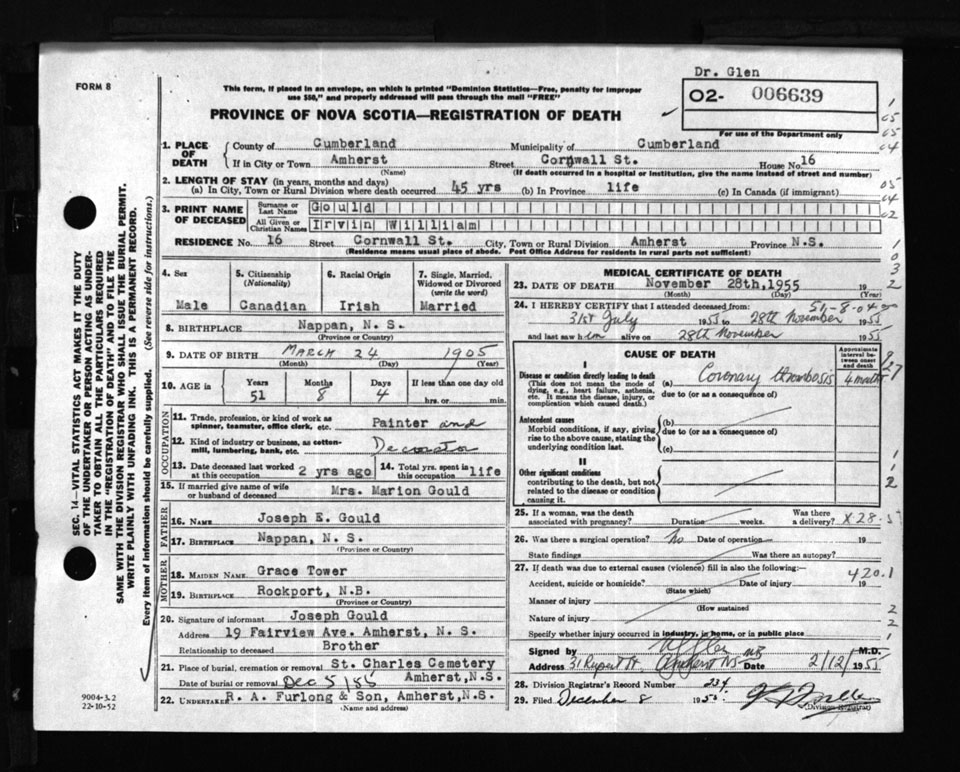 Dr. Glen
FORM 8
This form, if placed in an envelope, on which is printed "Dominion Statistics—Free, penalty for improper
use $50," and properly addressed will pass through the mail "FREE"
O2- 006639
For use of the Department only
PROVINCE OF NOVA SCOTIA—REGISTRATION OF DEATH
1. PLACE OF DEATH
County of Cumberland Municipality of Cumberland
If in City or Town Amherst Street Cornwall St. House No. 16
(Name) (If death occurred in a hospital or institution, give the name instead of street and number)
2. LENGTH OF STAY (in years, months and days)
(a) In City, Town or Rural Division where death occurred 45 yrs (b) In Province life (c) In Canada (if immigrant)
3. PRINT NAME OF DECEASED
Surname or Last Name Gould
All Given or Christian Names Irvin William
RESIDENCE No. 16 Street Cornwall St. City, Town or Rural Division Amherst Province N.S.
(Residence means usual place of abode. Post Office Address for residents in rural parts not sufficient)
4. Sex
Male
5. Citizenship (Nationality)
Canadian
6. Racial Origin
Irish
7. Single, Married, Widowed or Divorced (write the word)
Married
8. BIRTHPLACE Nappan, N. S.
(Province or Country)
9. DATE OF BIRTH MARCH 24 1905
(Month) (Day) (Year)
10. AGE IN
Years Months Days If less than one day old
51 8 4 hrs. or min.
OCCUPATION
11. Trade, profession, or kind of work as spinner, teamster, office clerk, etc. Painter and
12. Kind of industry or business, as cotton-mill, lumbering, bank, etc. Decorator
13. Date deceased last worked at this occupation 2 yrs ago
14. Total yrs. spent in this occupation life
15. If married give name of wife or husband of deceased Mrs. Marion Gould
FATHER
16. NAME Joseph E. Gould
17. BIRTHPLACE Nappan, N. S.
(Province or Country)
MOTHER
18. MAIDEN NAME Grace Tower
19. BIRTHPLACE Rockport, N.B.
(Province or Country)
20. Signature of informant Joseph Gould
Address 19 Fairview Ave. Amherst, N. S.
Relationship to deceased Brother
21. Place of burial, cremation or removal St. Charles Cemetery
Amherst, N.S.
Date of burial or removal Dec 5/55
22. UNDERTAKER R. A. Furlong & Son, Amherst, N.S.
(Name and address)
MEDICAL CERTIFICATE OF DEATH
23. DATE OF DEATH November 28th, 1955
(Month) (Day) (Year)
24. I HEREBY CERTIFY that I attended deceased from:
31st July 1955 to 28th November 1955
and last saw him alive on 28th November 1955
CAUSE OF DEATH
Approximate interval between onset and death
I
Disease or condition directly leading to death
(This does not mean the mode of dying, e.g., heart failure, asthenia, etc. It means the disease, injury, or complication which caused death.)
(a) Coronary thrombosis 4 months
due to (or as a consequence of)
Antecedent causes
Morbid conditions, if any, giving rise to the above cause, stating the underlying condition last.
(b)
due to (or as a consequence of)
(c)
II
Other significant conditions
contributing to the death, but not related to the disease or condition causing it.
25. If a woman, was the death associated with pregnancy? Duration weeks. Was there a delivery?
26. Was there a surgical operation? No Date of operation 19
State findings Was there an autopsy?
27. If death was due to external causes (violence) fill in also the following:—
Accident, suicide or homicide? Date of injury 19
(State which)
Manner of injury
(How sustained)
Nature of injury
Specify whether injury occurred in industry, in home, or in public place
420.1
Signed by M.D.
Address 31 Rupert St. Amherst NS Date 2/12/1955
28. Division Registrar's Record Number 234
29. Filed December 8 1955
Division Registrar
SEC. 14—VITAL STATISTICS ACT MAKES IT THE DUTY
OF THE UNDERTAKER OR PERSON ACTING AS UNDER-
TAKER TO OBTAIN ALL THE PARTICULARS REQUIRED
IN THE "REGISTRATION OF DEATH" AND TO FILE THE
SAME WITH THE DIVISION REGISTRAR WHO SHALL ISSUE THE BURIAL PERMIT.
WRITE PLAINLY WITH UNFADING INK. THIS IS A PERMANENT RECORD.
Every item of information should be carefully supplied. (See reverse side for instructions.)
9004-3.2
22-10-52